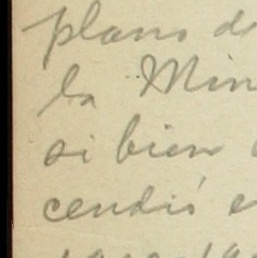 plano de
la Min
si bien
cendió e